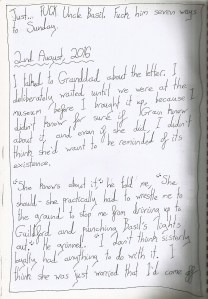 Just... FUCK Uncle Basil. Fuck him seven ways
to Sunday.
2nd August, 2016
I talked to Granddad about the letter. I
deliberately waited until we were at the
museum before I brought it up, because I
didn't know for sure if Gran knew
about it, and even if she did, I didn't
think she'd want to be reminded of its
existence.
"She knows about it," he told me, "She
should - she practically had to wrestle me to
the ground to stop me from driving up to
Guildford and punching Basil's lights
out," he grinned. "I don't think sisterly
loyalty had anything to do with it. I
think she was just worried that I'd come off